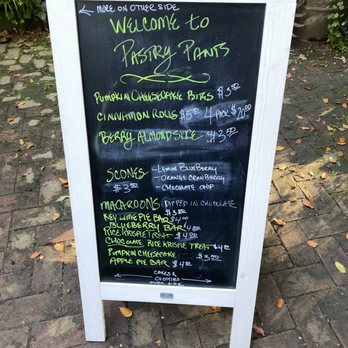 ← MORE ON OTHER SIDE
WELCOME TO
PASTRY PANTS
PUMPKIN CHEESECAKE BITES $3.50
CINNAMON ROLLS $5 4 PACK $20.00
BERRY ALMOND SLICE $3.50
SCONES - LEMON BLUEBERRY
$3.50 - ORANGE CRANBERRY
- CHOCOLATE CHIP
MACAROONS: DIPPED IN CHOCOLATE
KEY LIME PIE BAR
BLUEBERRY BAR
RICE KRISPIE TREAT $4.00
CHOCOLATE RICE KRISPIE TREAT
PUMPKIN CHEESECAKE $3.50
APPLE PIE BAR $4
CAKES &
COOKIES